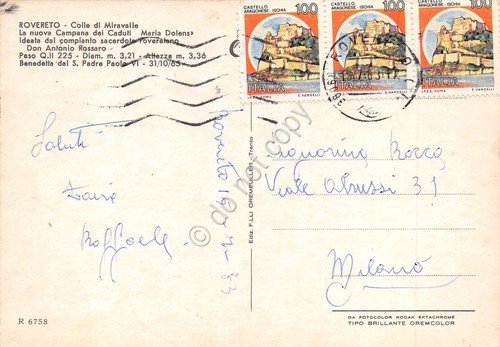 ROVERETO - Colle di Miravalle
La nuova Campana dei Caduti Maria Dolens
ideata dal compianto sacerdote roveretano
Don Antonio Rossaro
Peso Q.li 225 - Diam. m. 3,21 - Altezza m. 3,36
Benedetta dal S. Padre Paolo VI - 31/10/65
CASTELLO ARAGONESE ISCHIA 100
ITALIA
I.P.Z.S. - ROMA E. VANGELLI
CASTELLO ARAGONESE ISCHIA 100
ITALIA
I.P.Z.S. - ROMA E. VANGELLI
CASTELLO ARAGONESE ISCHIA 100
ITALIA
I.P.Z.S. - ROMA E. VANGELLI
Saluti
Raffaele
Rovereto
Ediz. F.LLI OREMPULLER - Trento
do not copy
Signorina Rocca
Viale Abruzzi 31
Milano
R 6758
DA FOTOCOLOR KODAK EKTACHROME
TIPO BRILLANTE OREMCOLOR